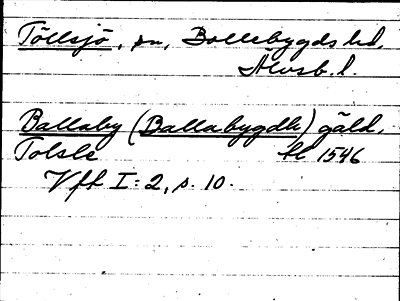 Töllsjö, sn, Bollebygds hd,
Älvsb. l.
Ballaby (Ballabygdh) gäld.
Tolsle hl 1546
Vft I:2, s. 10.